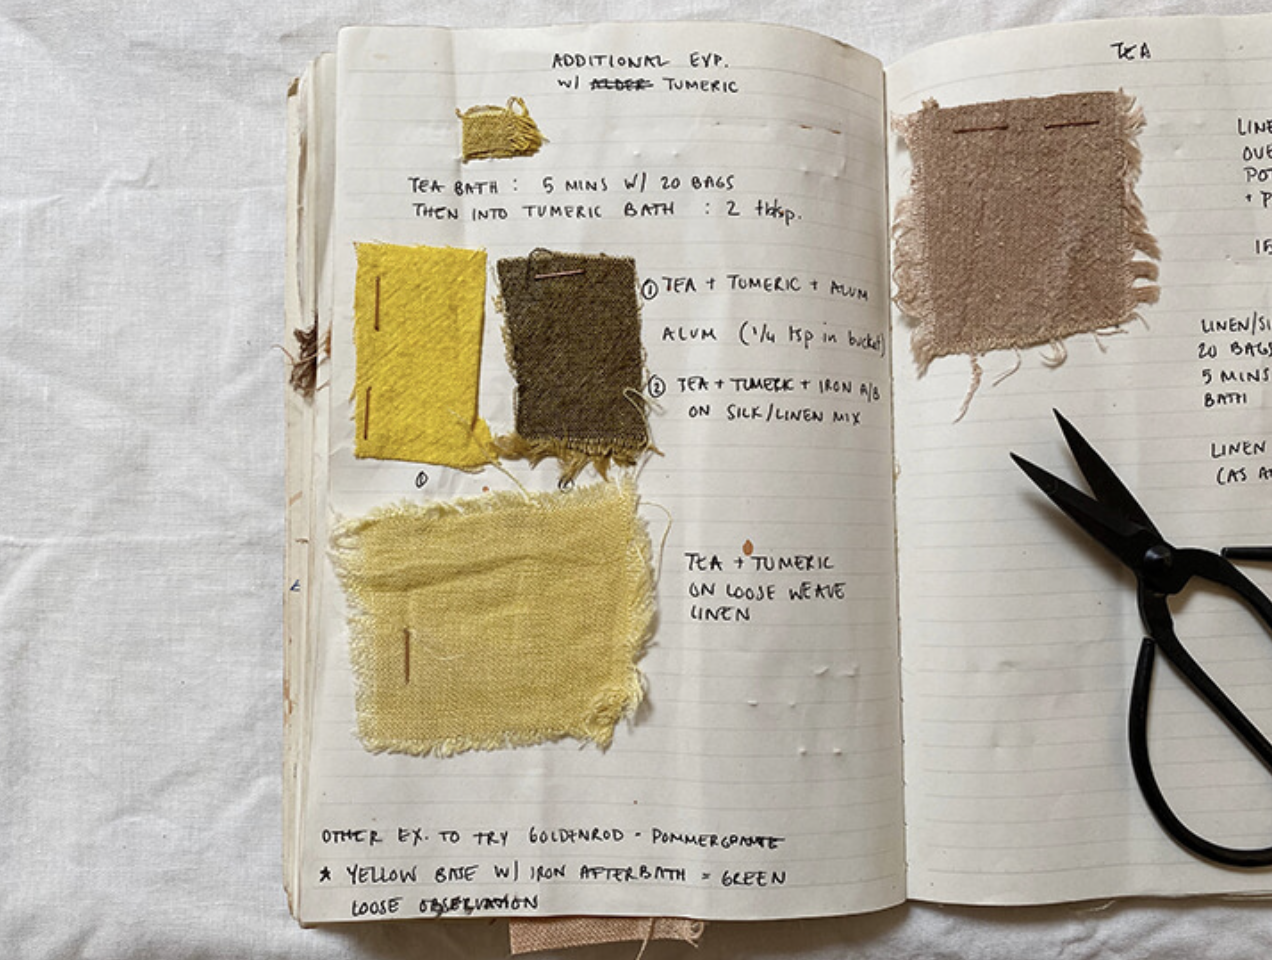 ADDITIONAL EXP.
W/ ALDER TUMERIC
TEA BATH : 5 MINS W/ 20 BAGS
THEN INTO TUMERIC BATH : 2 tblsp.
① TEA + TUMERIC + ALUM
ALUM (1/4 tsp in bucket)
② TEA + TUMERIC + IRON A/B
ON SILK/LINEN MIX
①
TEA + TUMERIC
ON LOOSE WEAVE
LINEN
OTHER EX. TO TRY GOLDENROD - POMMERGRANTE
* YELLOW BASE W/ IRON AFTERBATH = GREEN
LOOSE OBSERVATION
TEA
LINE
OVE
POT
+ P
15
LINEN/SI
20 BAGS
5 MINS
BATH
LINEN
(AS A